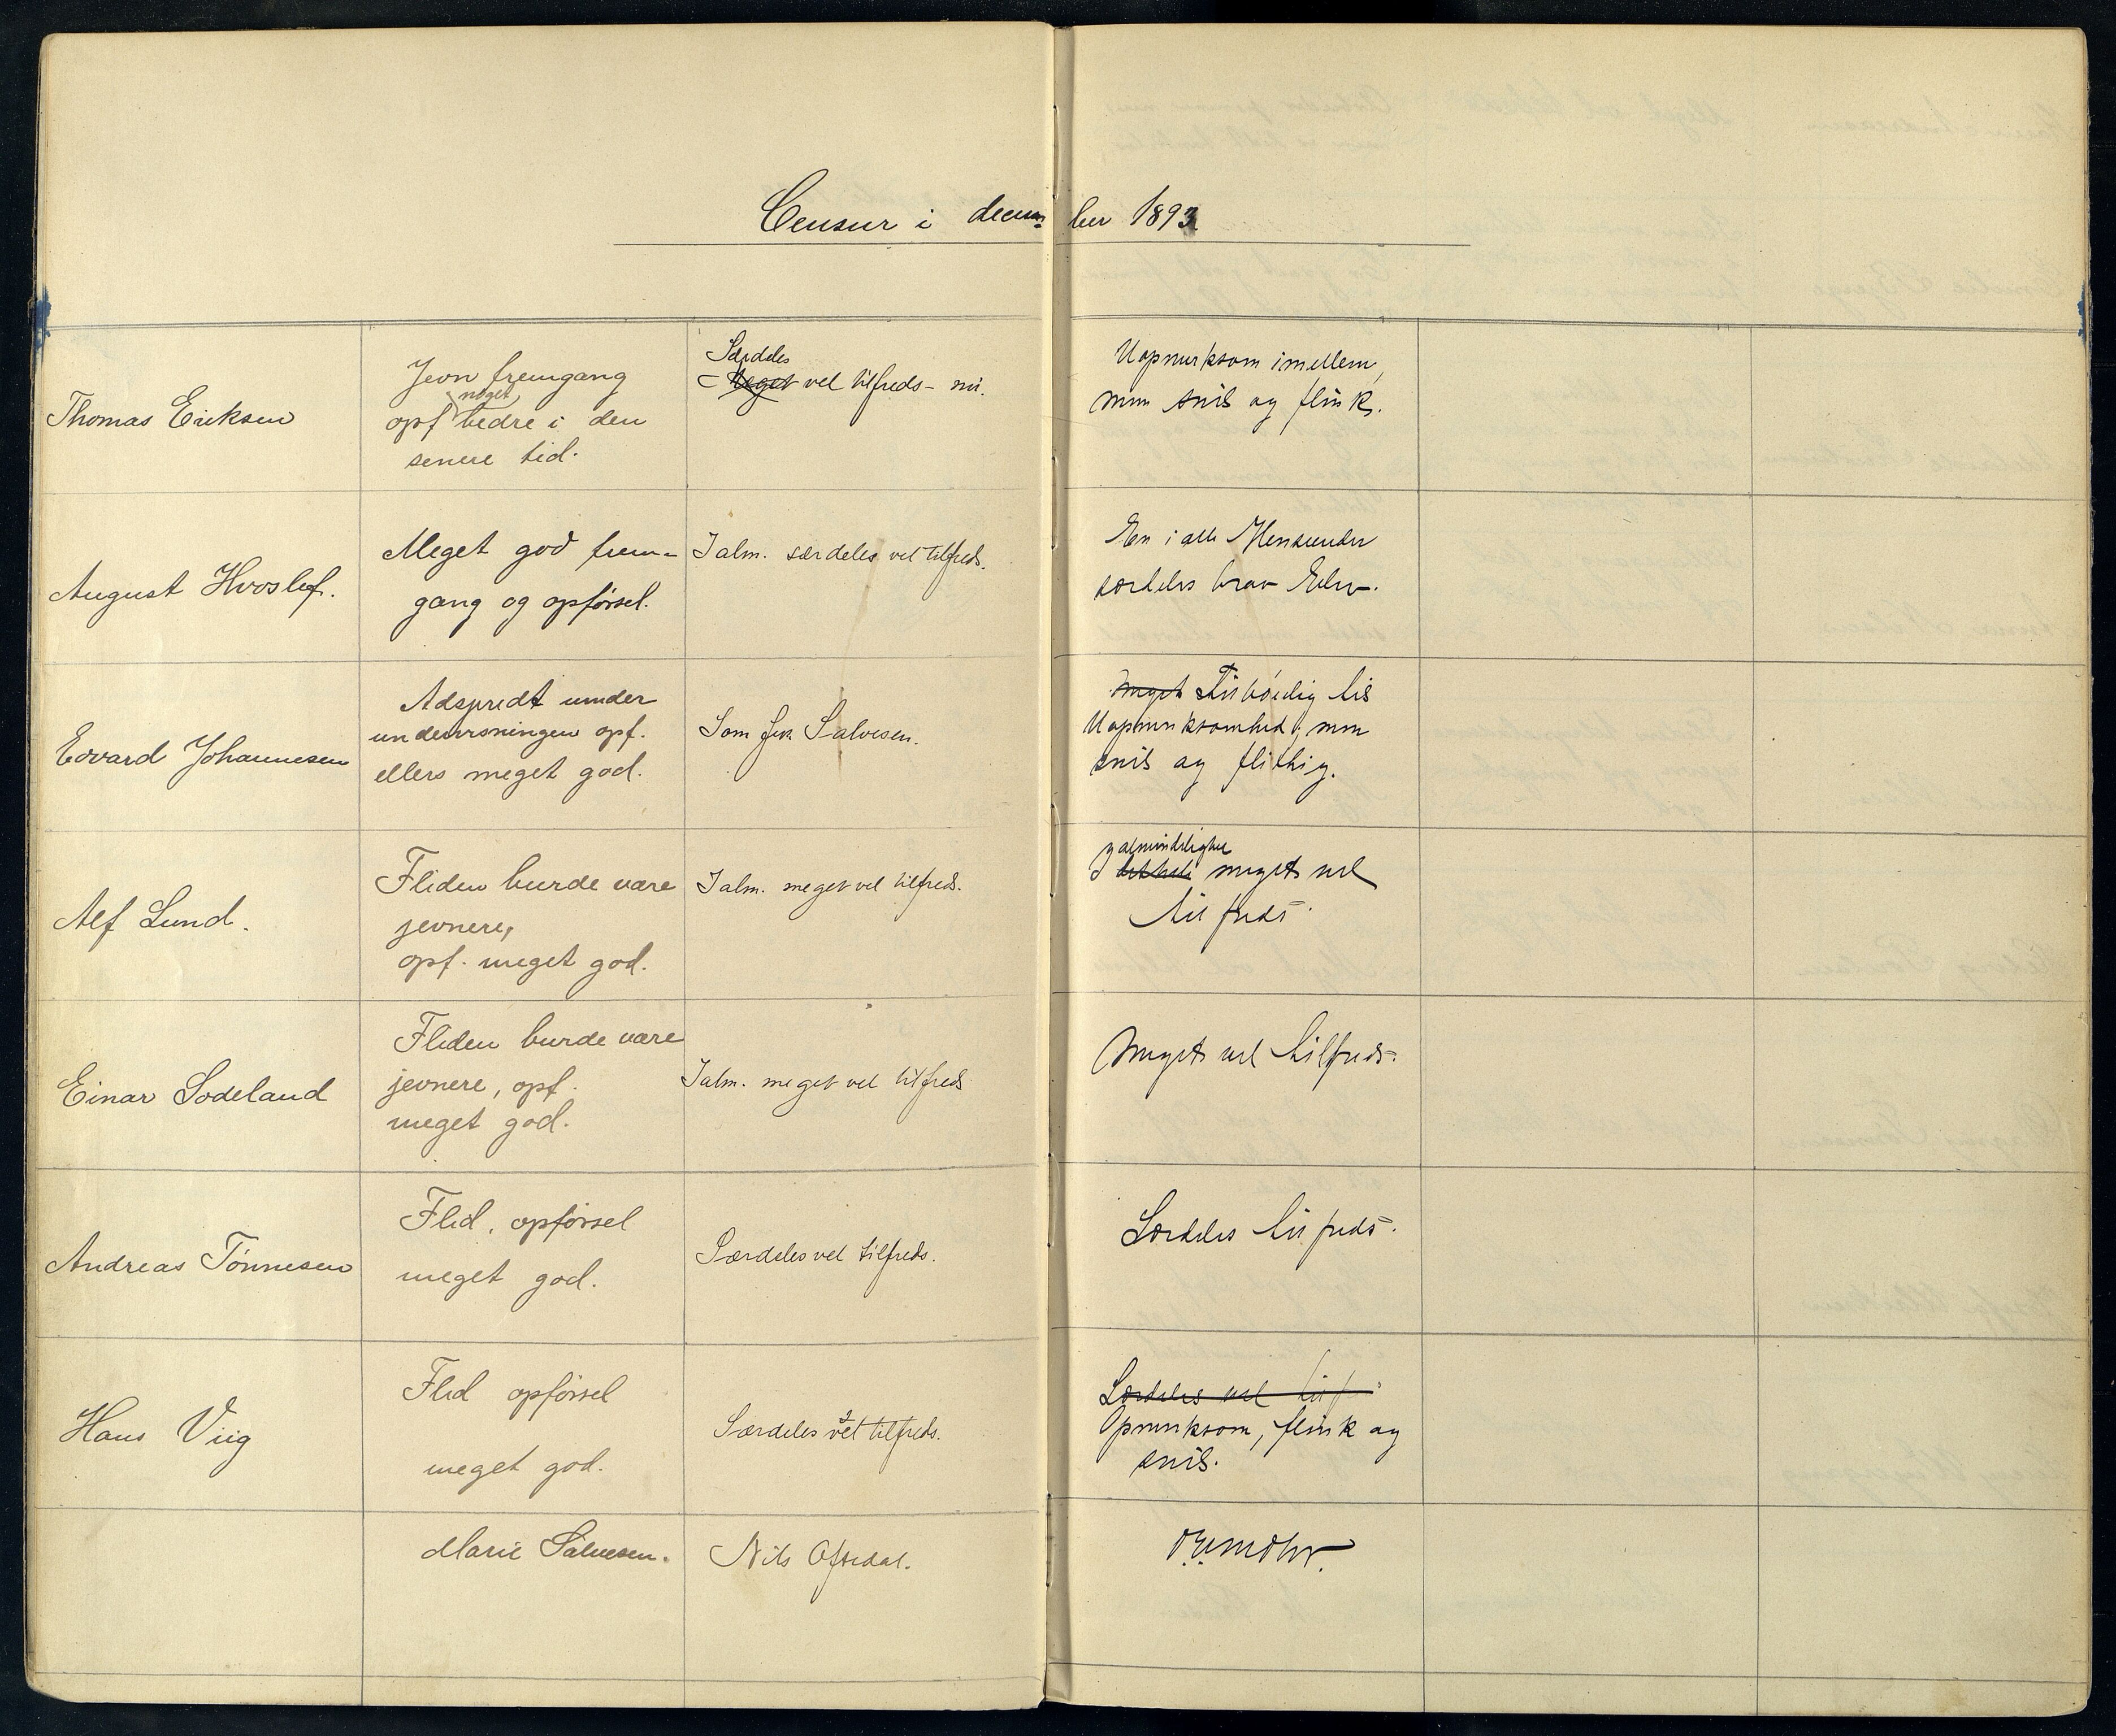 Censur i december 1893
Thomas Eriksen
Jevn fremgang
noget
opf bedre i den
senere tid.
Særdeles
Meget vel tilfreds-
Uopmerksom imellem,
men snil og flink.
August Hvoslef.
Meget god frem-
gang og opførsel.
I alm. særdeles vel tilfreds.
En i alle Henseender
særdeles brav Elev.
Edvard Johannesen
Adspredt under
undervisningen opf.
ellers meget god.
Som frk Salvesen.
Meget Tilbøielig til
Uopmerksomhed, men
snil og flittig.
Alf Lund.
Fliden burde være
jevnere,
opf. meget god.
I alm. meget vel tilfreds.
almindelighed
I meget vel
tilfreds.
Einar Sodeland
Fliden burde være
jevnere, opf.
meget god.
I alm. meget vel tilfreds
Meget vel tilfreds.
Andreas Tönnesen
Flid, opførsel
meget god.
Særdeles vel tilfreds.
Særdeles tilfreds.
Hans Viig
Flid opførsel
meget god.
Særdeles vel tilfreds.
Særdeles vel tilf
Opmerksom, flink og
snil.
Marie Salvesen.
Nils Oftedal.